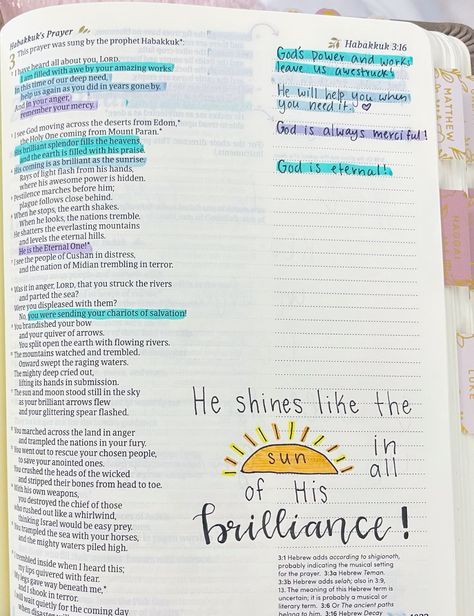 Habakkuk's Prayer
3 This prayer was sung by the prophet Habakkuk*:
2 I have heard all about you, LORD.
I am filled with awe by your amazing works.
In this time of our deep need,
help us again as you did in years gone by.
And in your anger,
remember your mercy.
3 I see God moving across the deserts from Edom,*
the Holy One coming from Mount Paran.*
His brilliant splendor fills the heavens,
and the earth is filled with his praise.
4 His coming is as brilliant as the sunrise.
Rays of light flash from his hands,
where his awesome power is hidden.
5 Pestilence marches before him;
plague follows close behind.
6 When he stops, the earth shakes.
When he looks, the nations tremble.
He shatters the everlasting mountains
and levels the eternal hills.
He is the Eternal One!*
7 I see the people of Cushan in distress,
and the nation of Midian trembling in terror.
8 Was it in anger, LORD, that you struck the rivers
and parted the sea?
Were you displeased with them?
No, you were sending your chariots of salvation!
9 You brandished your bow
and your quiver of arrows.
You split open the earth with flowing rivers.
10 The mountains watched and trembled.
Onward swept the raging waters.
The mighty deep cried out,
lifting its hands in submission.
11 The sun and moon stood still in the sky
as your brilliant arrows flew
and your glittering spear flashed.
12 You marched across the land in anger
and trampled the nations in your fury.
13 You went out to rescue your chosen people,
to save your anointed ones.
You crushed the heads of the wicked
and stripped their bones from head to toe.
14 With his own weapons,
you destroyed the chief of those
who rushed out like a whirlwind,
thinking Israel would be easy prey.
15 You trampled the sea with your horses,
and the mighty waters piled high.
trembled inside when I heard this;
my lips quivered with fear.
legs gave way beneath me,*
and I shook in terror.
will wait quietly for the coming day
Habakkuk 3:16
God's power and works
leave us awestruck!
He will help you when
you need it.
God is always merciful!
God is eternal!
He shines like the
sun
in
all
of His
brilliance!
3:1 Hebrew adds according to shigionoth,
probably indicating the musical setting
for the prayer. 3:3a Hebrew Teman.
3:3b Hebrew adds selah; also in 3:9,
13. The meaning of this Hebrew term is
uncertain; it is probably a musical or
literary term. 3:6 Or The ancient paths
belong to him. 3:16 Hebrew Decay
MATTHEW
HAGGAI
LUKE